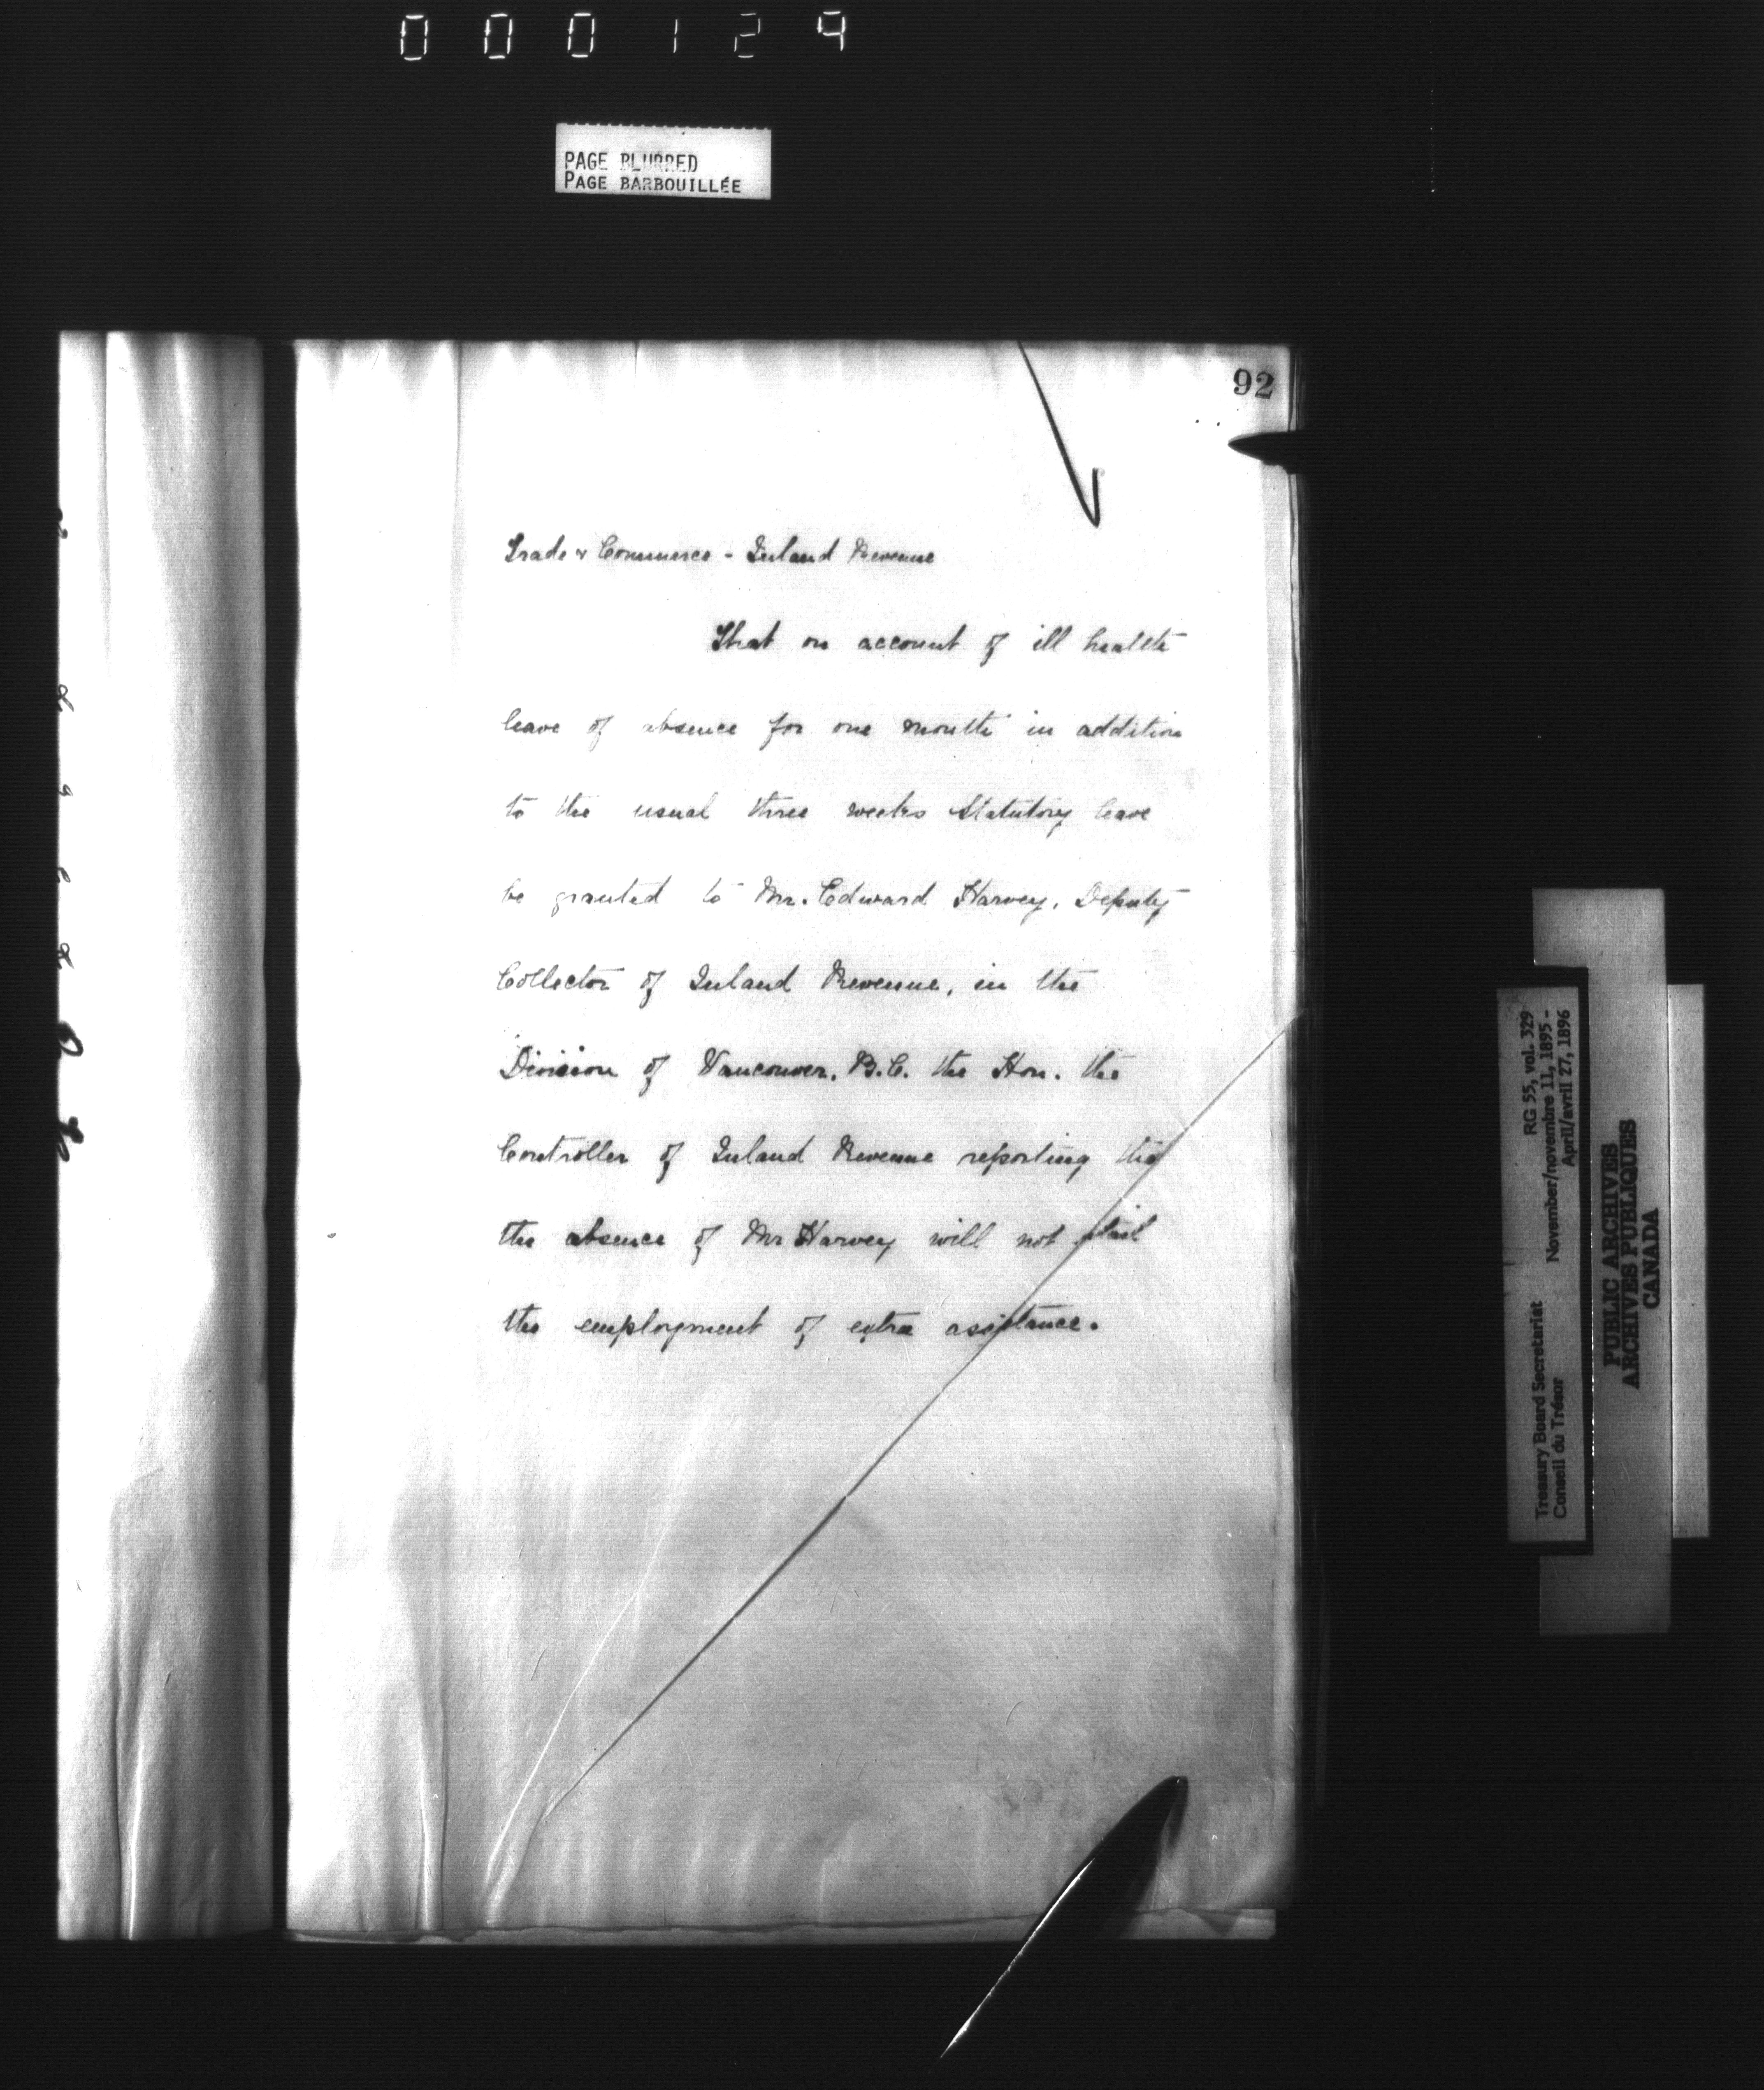 000129
PAGE BLURRED
PAGE BARBOUILLÉE
92
Trade & Commerce - Inland Revenue
That on account of ill health
leave of absence for one month in addition
to the usual three weeks Statutory leave
be granted to Mr. Edward Harvey, Deputy
Collector of Inland Revenue, in the
Division of Vancouver, B.C. the Hon. the
Controller of Inland Revenue reporting that
the absence of Mr Harvey will not entail
the employment of extra assistance.
Treasury Board Secretariat RG 55, vol. 329
Conseil du Trésor November/novembre 11, 1895 -
April/avril 27, 1896
PUBLIC ARCHIVES
ARCHIVES PUBLIQUES
CANADA